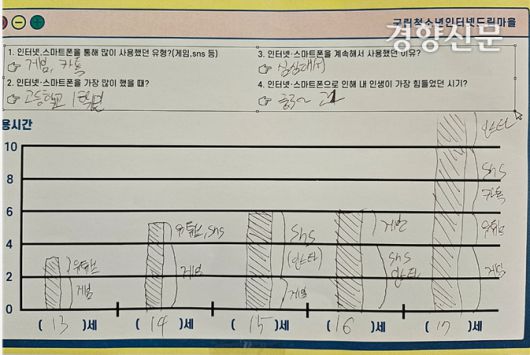 국립청소년인터넷드림마을
경향신문
1. 인터넷·스마트폰을 통해 많이 사용했던 유형?(게임,sns 등)
게임, 카톡
3. 인터넷·스마트폰을 계속해서 사용했던 이유?
심심해서
2. 인터넷·스마트폰을 가장 많이 했을 때?
고등학교 1학년
4. 인터넷·스마트폰으로 인해 내 인생이 가장 힘들었던 시기?
중3~고1
용시간
10
8
6
4
2
0
유튜브
게임
유튜브, sns
게임
sns
(인스타)
게임
게임
sns
인스타
인스타
sns
카톡
유튜브
게임
( 13 )세
( 14 )세
( 15 )세
( 16 )세
( 17 )세